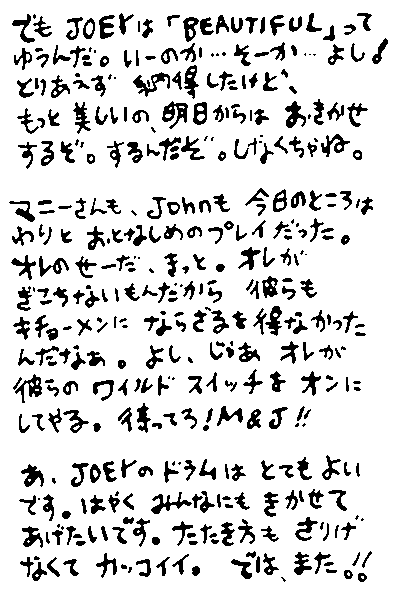 でも JOEYは「BEAUTIFUL」って
ゆうんだ。いーのか…そーか…よし!
とりあえず 納得したけど、
もっと 美しいの、明日からは おきかせ
するぞ。するんだぞ。しなくちゃね。
マニーさんも、Johnも 今日のところは
わりと おとなしめのプレイだった。
オレのせーだ、きっと。オレが
ぎこちないもんだから 彼らも
キチョーメンに ならざるを得なかった
んだなぁ。よし、じゃあ オレが
彼らの ワイルド スイッチを オンに
してやる。待ってろ!M&J!!
あ、JOEYのドラムは とてもよい
です。はやく みんなにも きかせて
あげたいです。たたき方も さりげ
なくて カッコイイ。 では、また!!